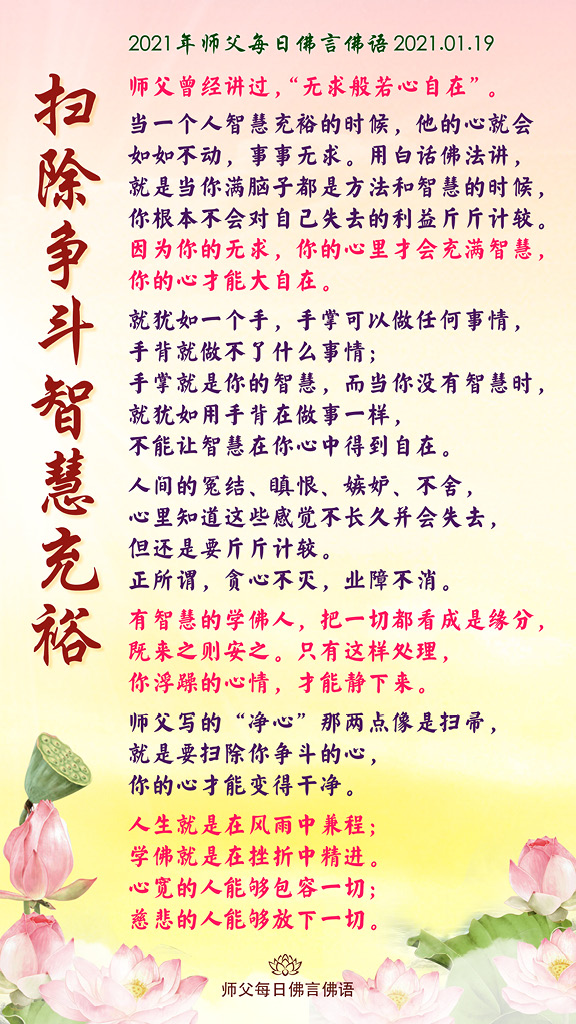 2021年师父每日佛言佛语 2021.01.19
扫除争斗智慧充裕
师父曾经讲过，“无求般若心自在”。
当一个人智慧充裕的时候，他的心就会
如如不动，事事无求。用白话佛法讲，
就是当你满脑子都是方法和智慧的时候，
你根本不会对自己失去的利益斤斤计较。
因为你的无求，你的心里才会充满智慧，
你的心才能大自在。
就犹如一个手，手掌可以做任何事情，
手背就做不了什么事情；
手掌就是你的智慧，而当你没有智慧时，
就犹如用手背在做事一样，
不能让智慧在你心中得到自在。
人间的冤结、瞋恨、嫉妒、不舍，
心里知道这些感觉不长久并会失去，
但还是要斤斤计较。
正所谓，贪心不灭，业障不消。
有智慧的学佛人，把一切都看成是缘分，
既来之则安之。只有这样处理，
你浮躁的心情，才能静下来。
师父写的“净心”那两点像是扫帚，
就是要扫除你争斗的心，
你的心才能变得干净。
人生就是在风雨中兼程；
学佛就是在挫折中精进。
心宽的人能够包容一切；
慈悲的人能够放下一切。
师父每日佛言佛语